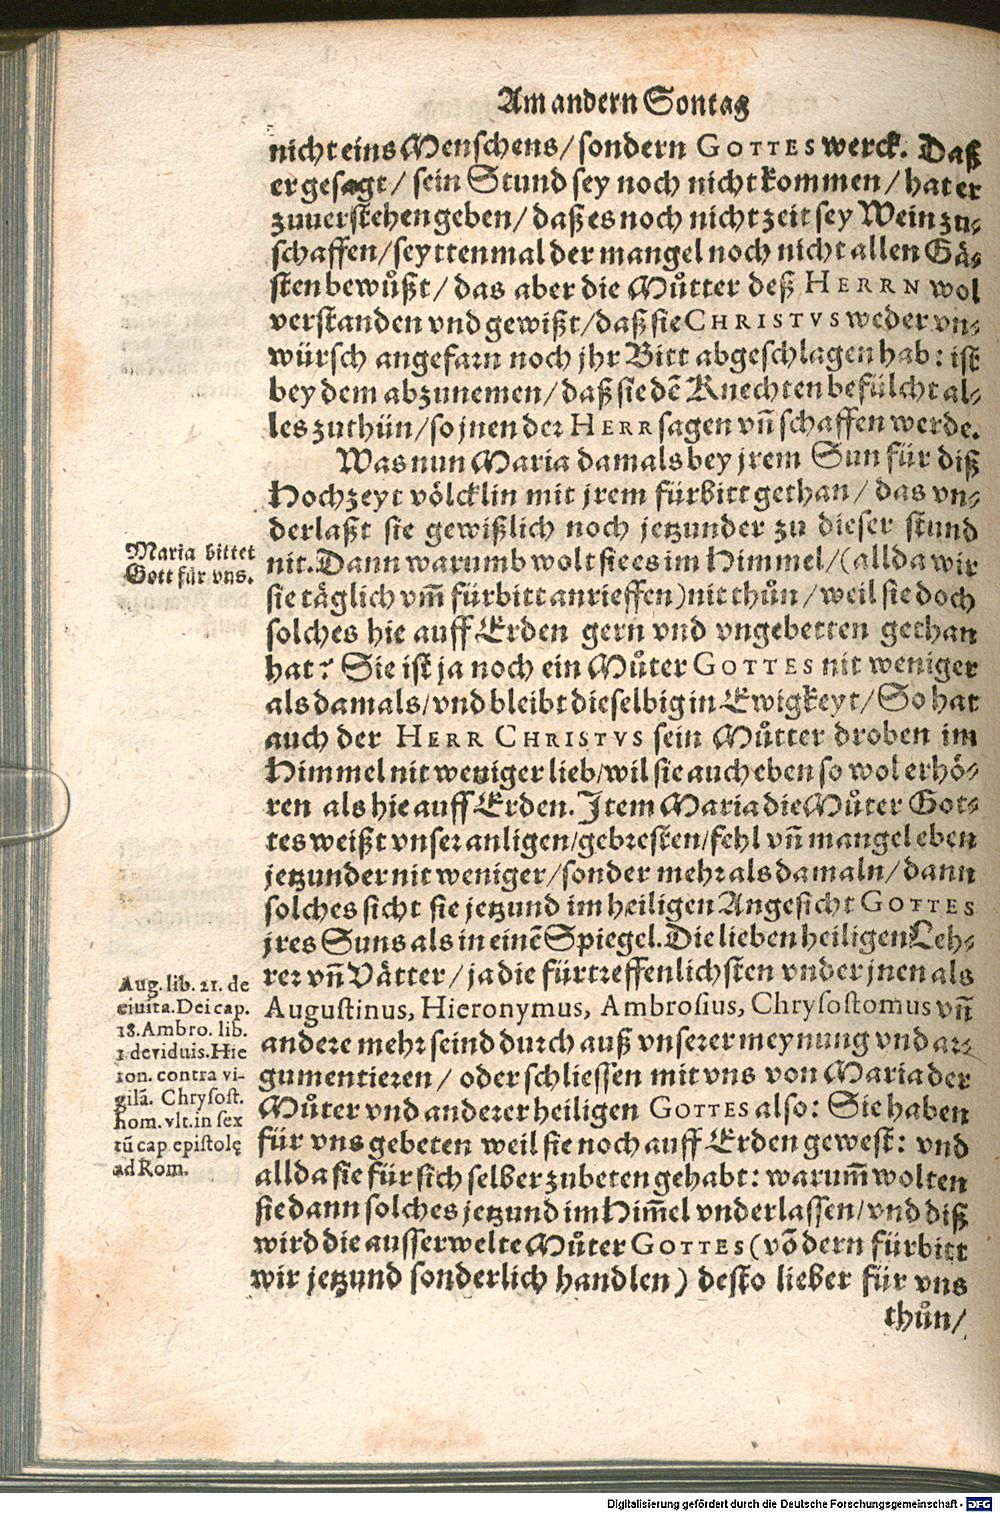 Am andern Sontag
nicht eins Menschens/ sondern GOTTES werck. Daß
er gesagt/ sein Stund sey noch nicht kommen/ hat er
zuuerstehen geben/ daß es noch nicht zeit sey Wein zu-
schaffen/ seyttenmal der mangel noch nicht allen Gä-
sten bewůßt/ das aber die Můtter deß HERRN wol
verstanden vnd gewißt/ daß sie CHRISTVS weder vn-
würsch angefarn noch jhr Bitt abgeschlagen hab: ist
bey dem abzunemen/ daß sie dẽ Knechten befülcht al-
les zuthün/ so jnen der HERR sagen vñ schaffen werde.
Was nun Maria damals bey jrem Sun für diß
Hochzeyt völcklin mit jrem fürbitt gethan/ das vn-
derlaßt sie gewißlich noch jetzunder zu dieser stund
Maria bittet
Gott für vns.
nit. Dann warumb wolt sie es im Himmel/ (allda wir
sie täglich vm̃ fürbitt anrieffen) nit thůn/ weil sie doch
solches hie auff Erden gern vnd vngebetten gethan
hat? Sie ist ja noch ein Můter GOTTES nit weniger
als damals/ vnd bleibt dieselbig in Ewigkeyt/ So hat
auch der HERR CHRISTVS sein Můtter droben im
Himmel nit weniger lieb/ wil sie auch eben so wol erhö-
ren als hie auff Erden. Jtem Maria die Můter Got-
tes weißt vnser anligen/ gebresten/ fehl vñ mangel eben
jetzunder nit weniger/ sonder mehr als damaln/ dann
solches sicht sie jetzund im heiligen Angesicht GOTTES
jres Suns als in einẽ Spiegel. Die lieben heiligen Leh-
rer vñ Vätter/ ja die fürtreffenlichsten vnder jnen als
Aug. lib. 21. de
ciuita. Dei cap.
18. Ambro. lib.
1 de viduis. Hie
ron. contra vi-
gilã. Chrysost.
hom. vlt. in sex
tũ cap epistolę
ad Rom.
Augustinus, Hieronymus, Ambrosius, Chrysostomus vñ
andere mehr seind durch auß vnserer meynung vnd ar-
gumentieren/ oder schliessen mit vns von Maria der
Můter vnd anderer heiligen GOTTES also: Sie haben
für vns gebeten weil sie noch auff Erden gewest: vnd
allda sie für sich selber zubeten gehabt: warum̃ wolten
sie dann solches jetzund im Him̃el vnderlassen/ vnd diß
wird die ausserwelte Můter GOTTES (võ dern fürbitt
wir jetzund sonderlich handlen) desto lieber für vns
thůn/
Digitalisierung gefördert durch die Deutsche Forschungsgemeinschaft - DFG